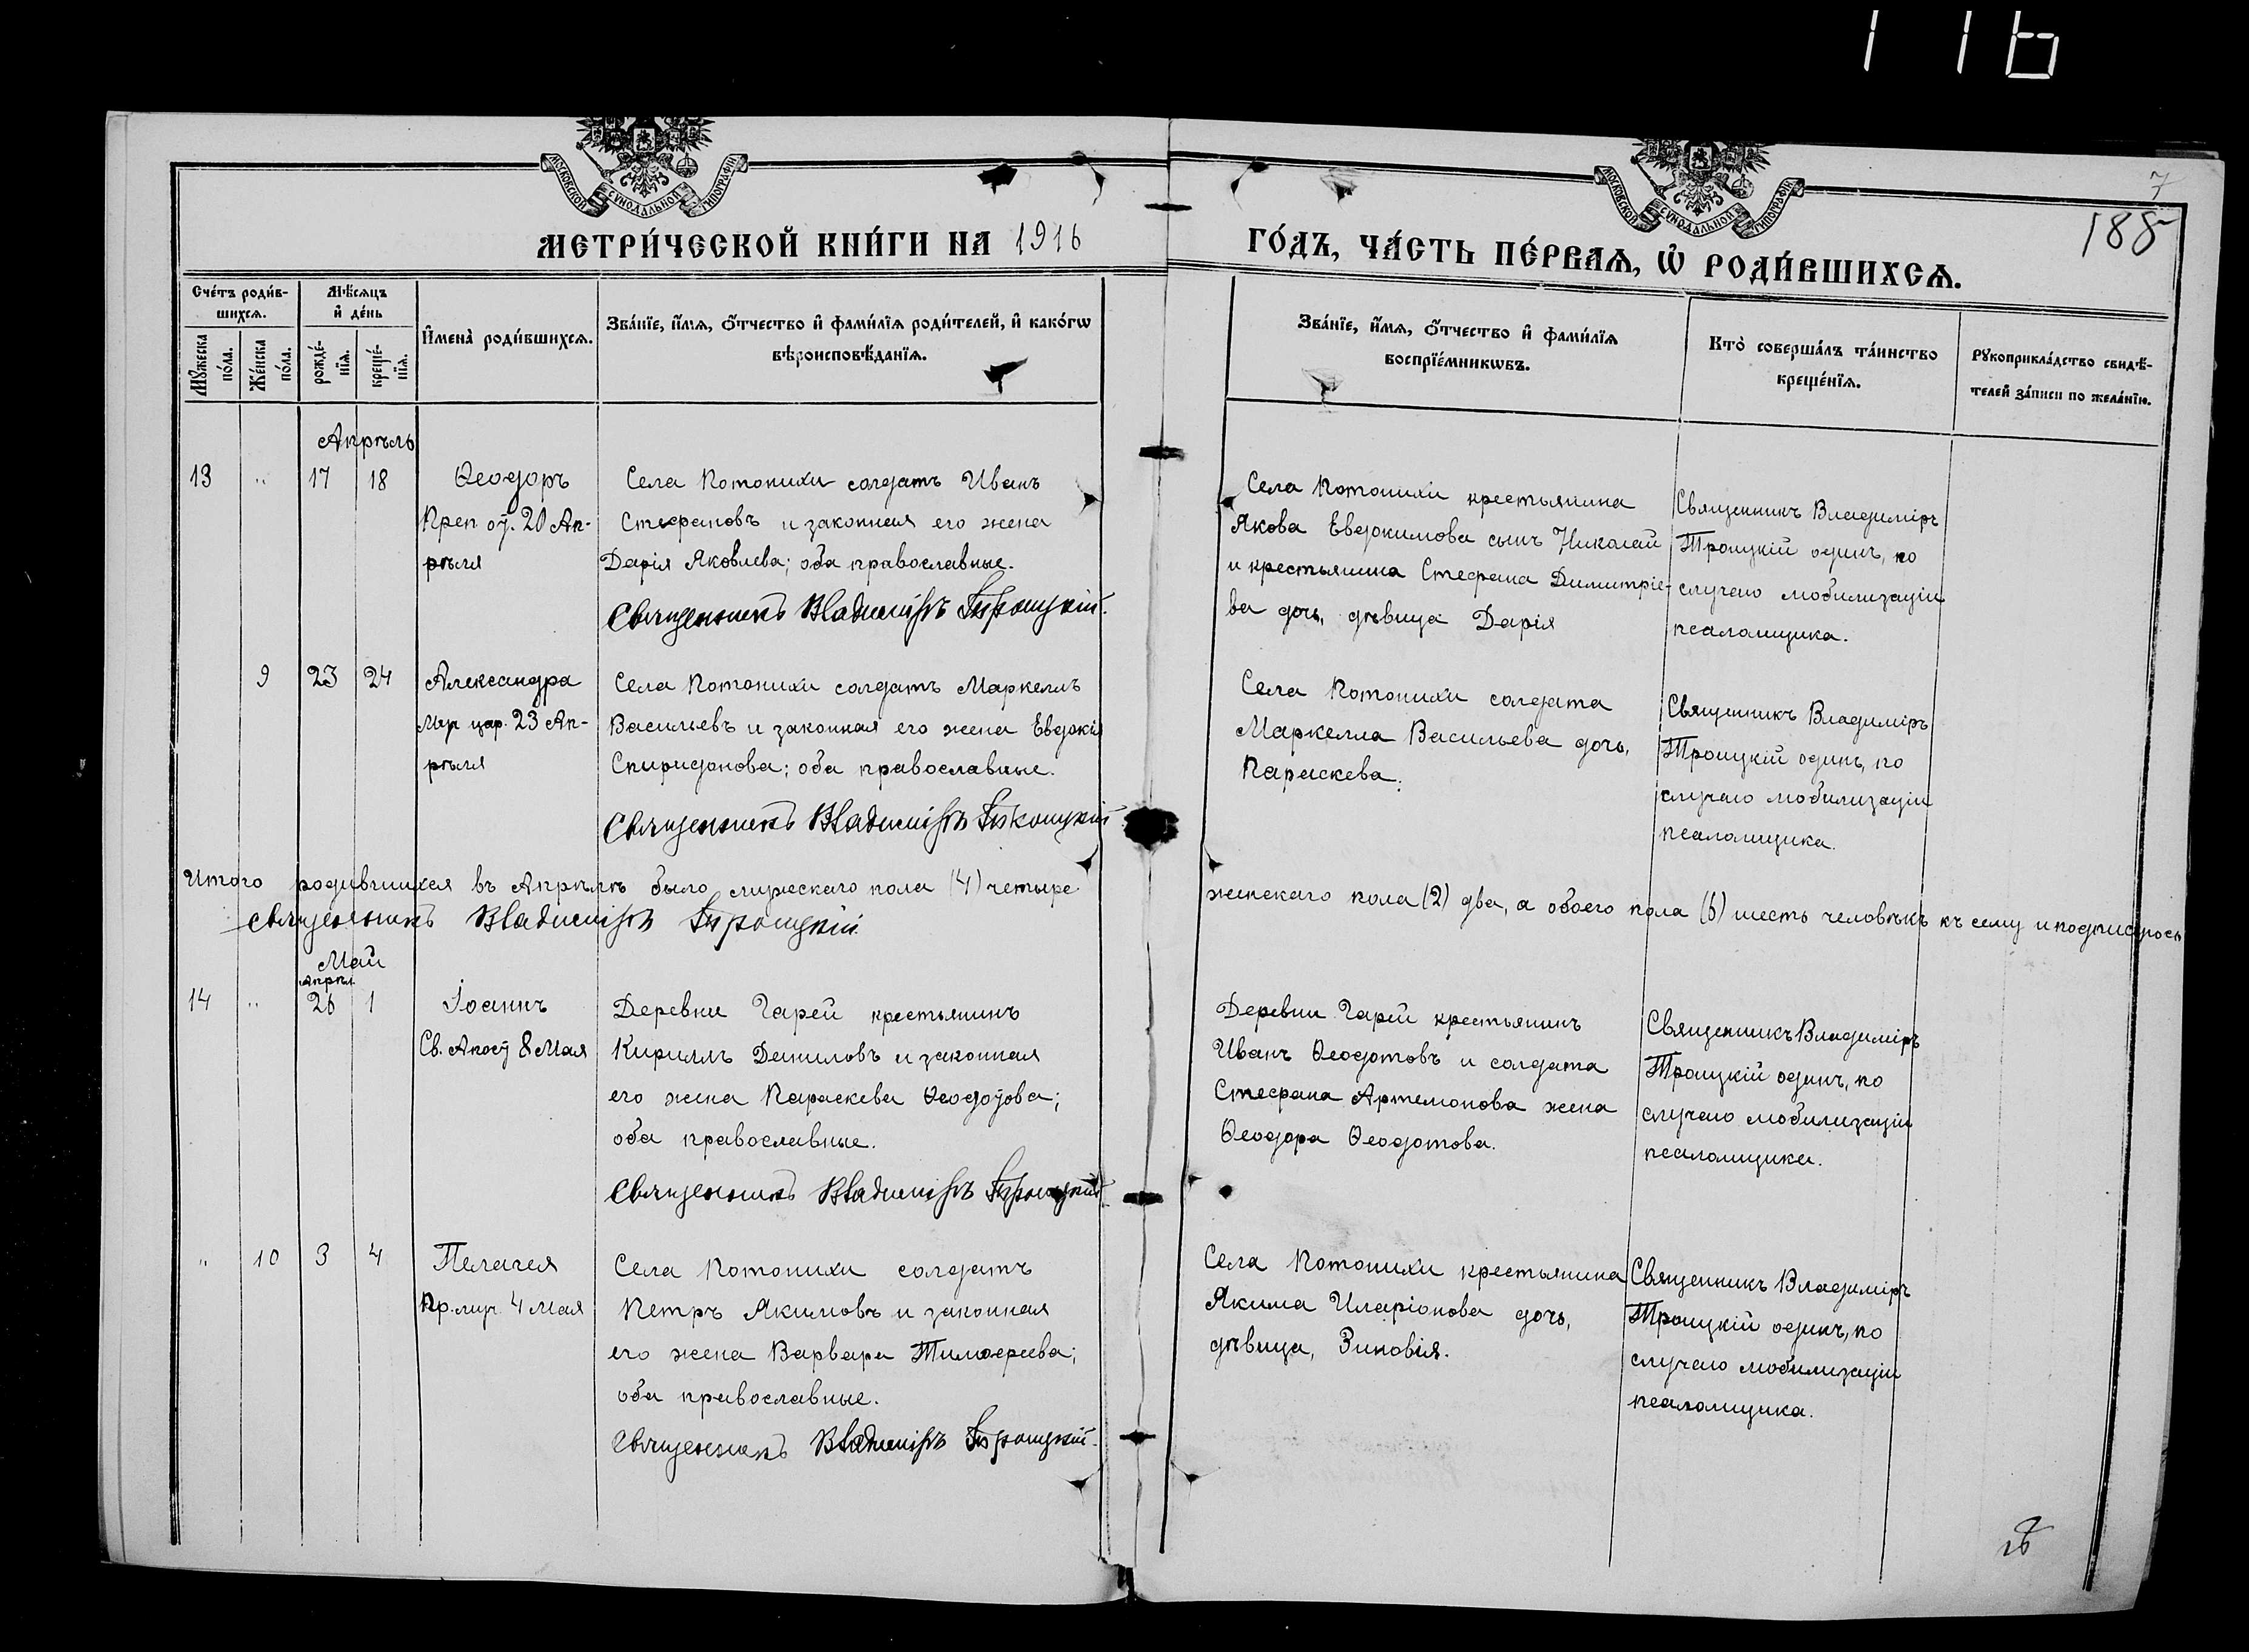 116
МОСКОВСКОЙ СУНОДАЛЬНОЙ ТИПОГРАФІИ
МОСКОВСКОЙ СУНОДАЛЬНОЙ ТИПОГРАФІИ
7
188
МЕТРИ́ЧЕСКОЙ КНИ́ГИ НА 1916
ГО́ДЪ, ЧА́СТЬ ПЕ́РВАЯ, Ѡ РОДИ́ВШИХСЯ.
Сче́тъ роди́вшихся.
Му́жеска по́ла.
Же́нска по́ла.
Мѣ́сяцъ и де́нь
рожде́нїя.
креще́нїя.
Имена̀ роди́вшихся.
Зва́нїе, и́мя, о́тчество и фами́лїя роди́телей, и како́гѡ
вѣроисповѣ́данїя.
Зва́нїе, и́мя, о́тчество и фами́лїя
воспрїе́мникѡвъ.
Кто̀ соверша́лъ та́инство
креще́нїя.
Рукоприкла́дство свидѣ́-
телей за́писи по жела́нїю.
Апрѣль
13 " 17 18
Ѳеодоръ
Преп. 20 Ап-
рѣля
Села Потонихи солдатъ Иванъ
Стефановъ и законная его жена
Дарія Яковлева; оба православные.
Священникъ Владиміръ Троицкій.
Села Потонихи крестьянина
Якова Евдокимова сынъ Николай
и крестьянина Стефана Димитріе-
ва дочь, дѣвица Дарія
Священникъ Владиміръ
Троицкій одинъ, по
случаю мобилизаціи
псаломщика.
9 23 24
Александра
Мyч. цар. 23 Ап-
рѣля
Села Потонихи солдатъ Маркеллъ
Васильевъ и законная его жена Евдокія
Спиридонова; оба православные.
Священникъ Владиміръ Троицкій
Села Потонихи солдата
Маркелла Васильева дочь,
Параскева.
Священникъ Владиміръ
Троицкій одинъ, по
случаю мобилизаціи
псаломщика.
Итого родившихся въ Апрѣлѣ было мужескаго пола (4) четыре
женскаго пола (2) два, а обоего пола (6) шесть человѣкъ къ сему и подписуюсь
священникъ Владиміръ Троицкій.
Май
Апрѣл.
14 " 26 1
Іоаннъ
Св. Апос. 8 Мая
Деревни Гарей крестьянинъ
Кириллъ Даниловъ и законная
его жена Параскева Ѳеодотова;
оба православные.
Священникъ Владиміръ Троицкій
Деревни Гарей крестьянинъ
Иванъ Ѳеодотовъ и солдата
Стефана Артемонова жена
Ѳеодора Ѳеодотова.
Священникъ Владиміръ
Троицкій одинъ, по
случаю мобилизаціи
псаломщика.
" 10 3 4
Пелагея
Пр. муч. 4 Мая
Села Потонихи солдатъ
Петръ Якимовъ и законная
его жена Варвара Тимофеева;
оба православные.
Священникъ Владиміръ Троицкій.
Села Потонихи крестьянина
Якима Иларіонова дочь,
дѣвица, Зиновія.
Священникъ Владиміръ
Троицкій одинъ, по
случаю мобилизаціи
псаломщика.